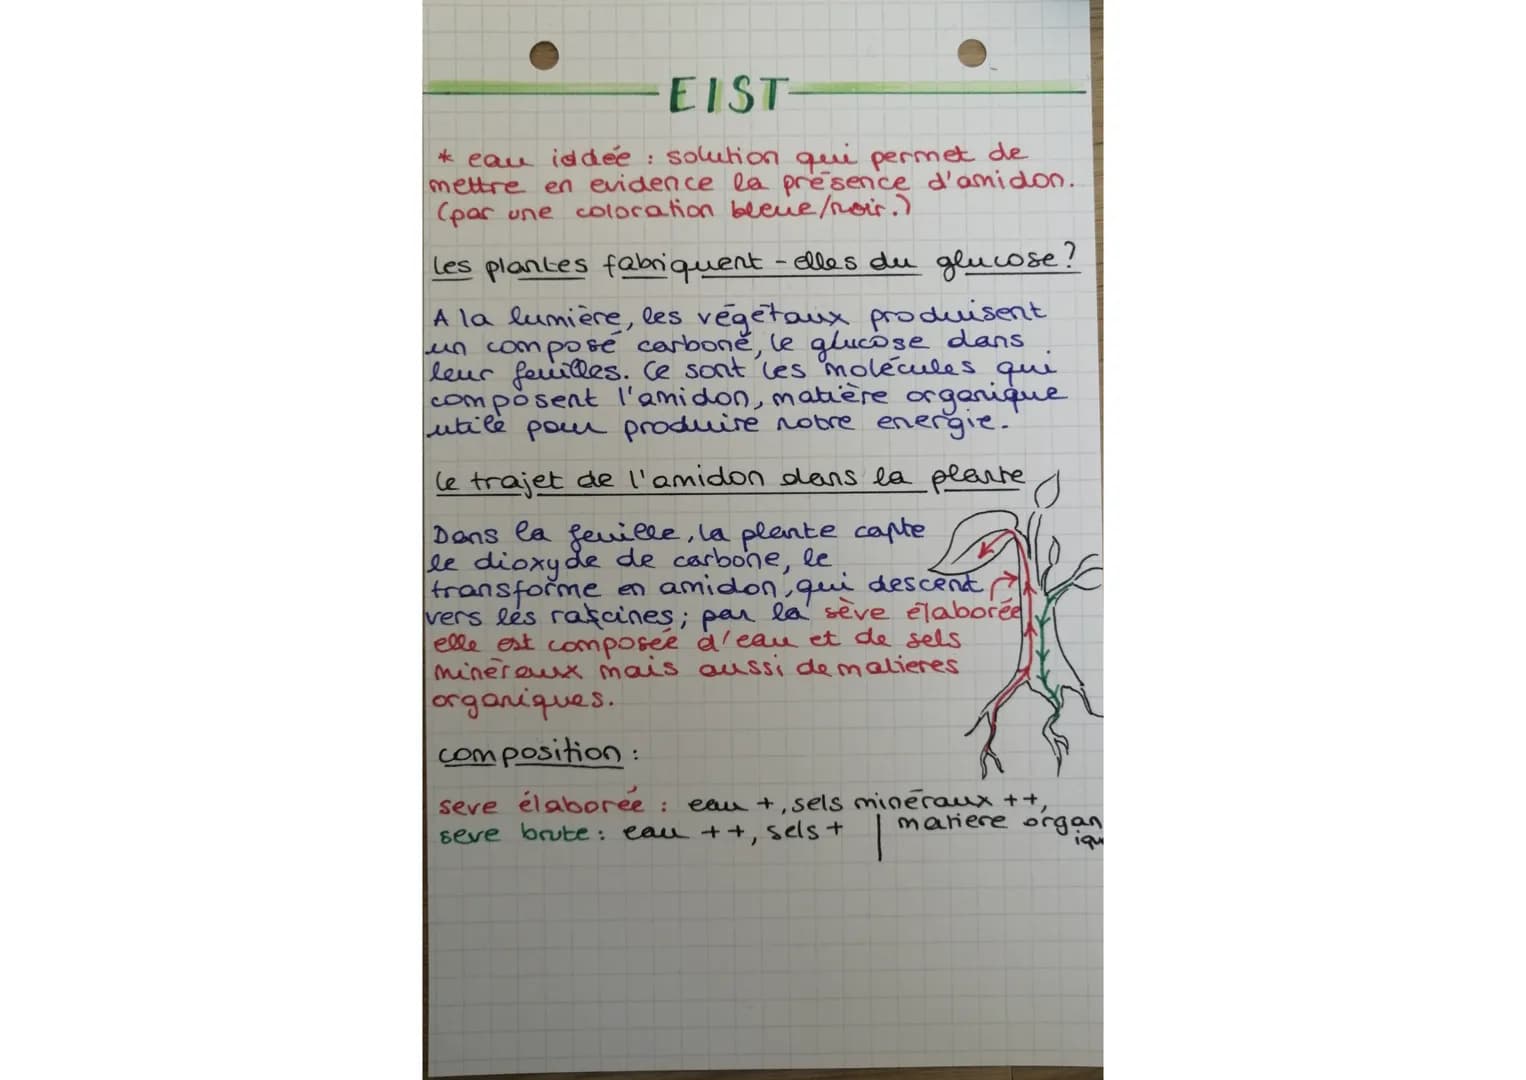 EIST
* eau iddée : solution qui permet de
mettre en evidence la présence d'amidon.
(par une coloration bleue/noir.)
Les plantes fabriquent-elles du glucose ?
A la lumière, les végétaux produisent
un composé carboné, le glucose dans
leur feuilles. Ce sont les molécules qui
composent l'amidon, matière organique
utile pour produire notre energie.
Le trajet de l'amidon dans la plante
Dans la feuille, la plante capte
le dioxyde de carbone, le
transforme en amidon, qui descent
vers les racines; par la sève élaborée
elle est composée d'eau et de sels
minéraux mais aussi de matieres
organiques.
composition :
seve élaborée : eau +, sels minéraux ++,
matiere organ
iqu
seve brute : eau ++, sels +